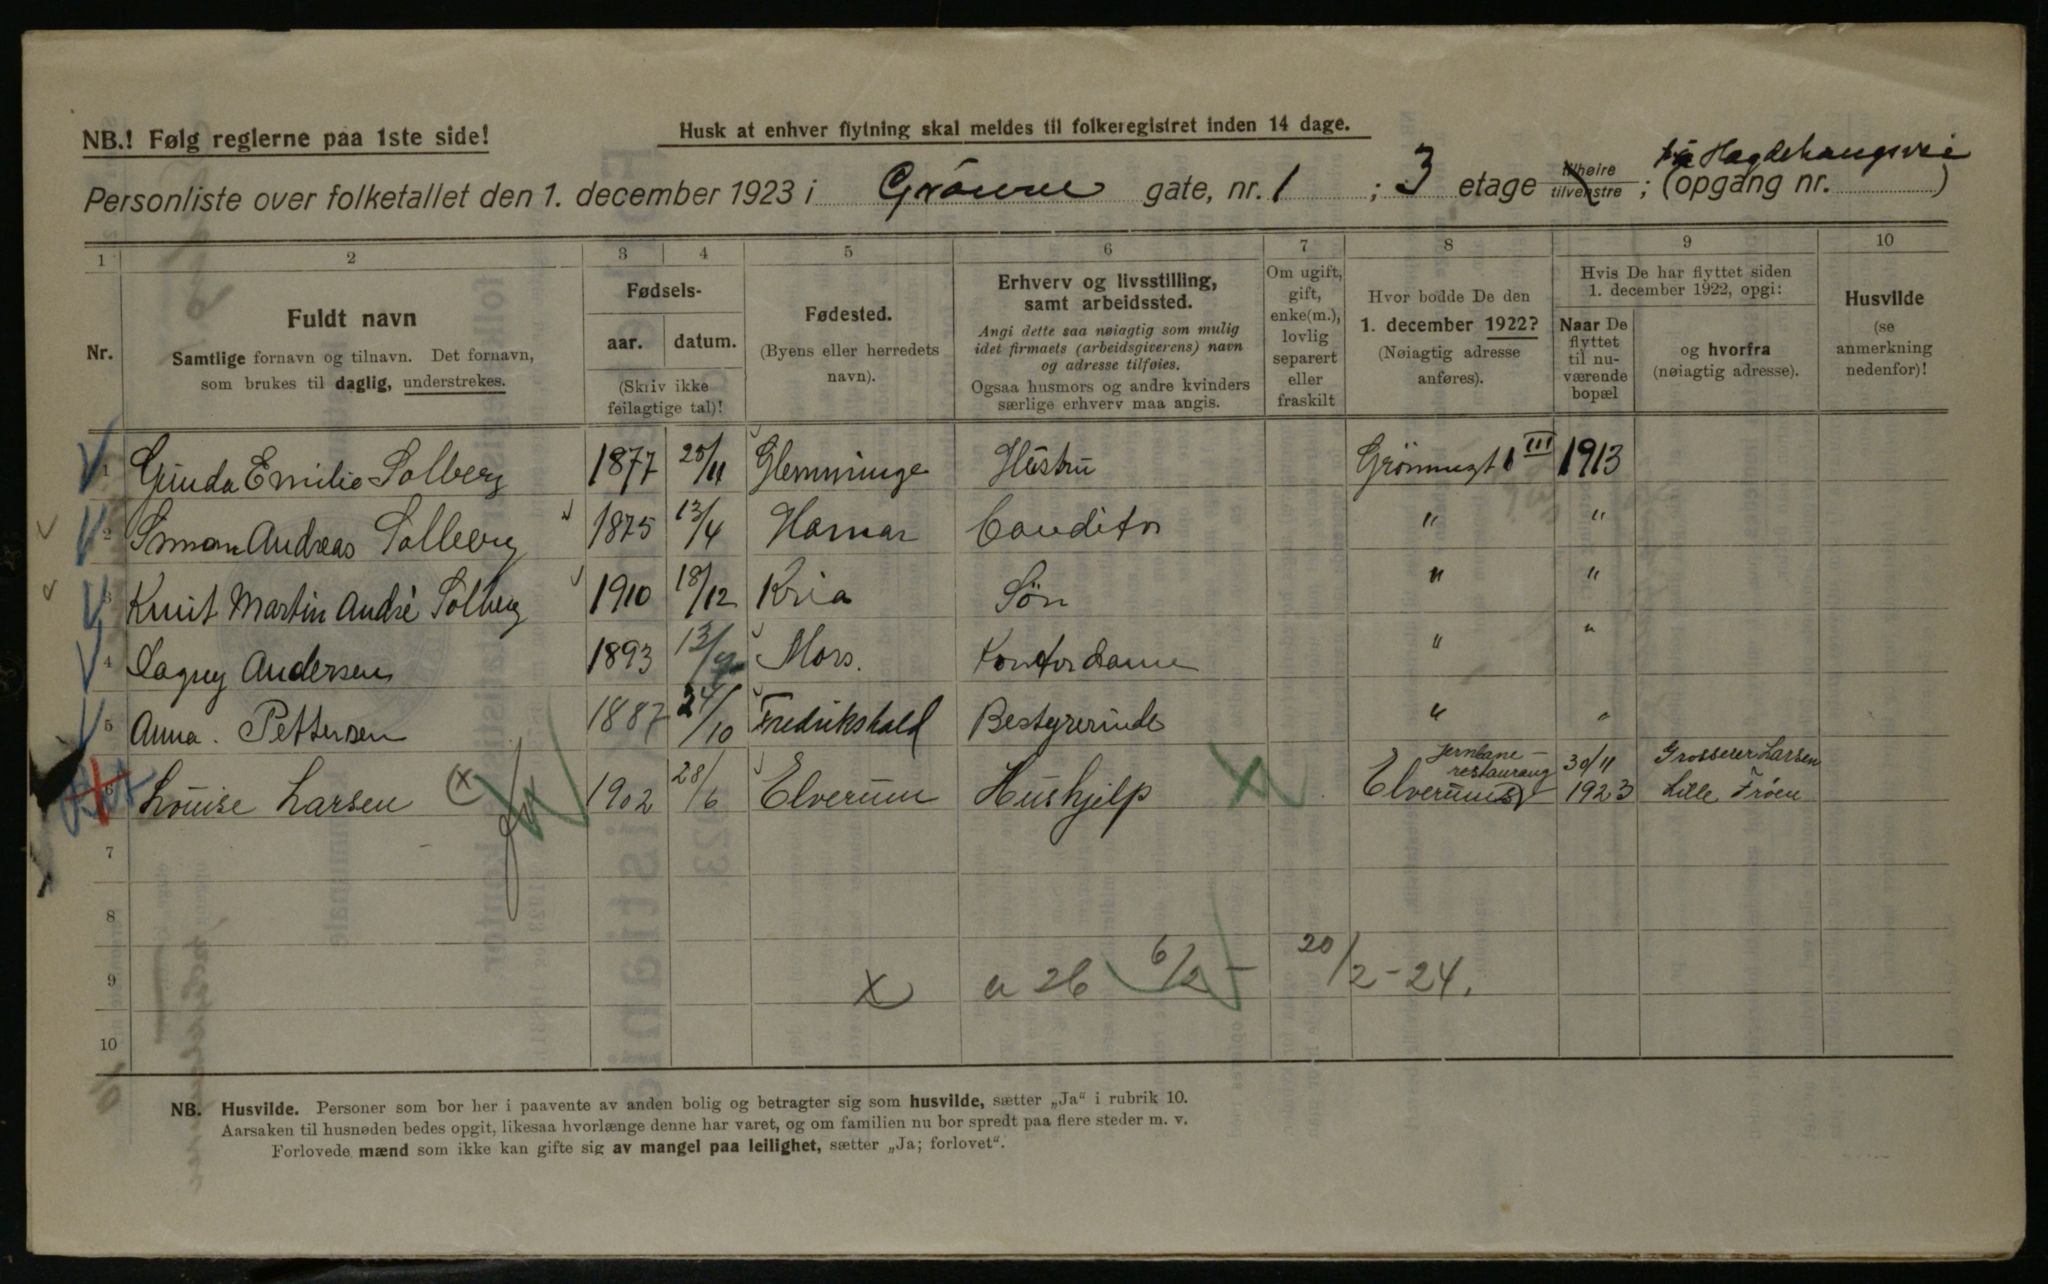 NB.! Følg reglerne paa 1ste side!
Husk at enhver flytning skal meldes til folkeregistret inden 14 dage.
Personliste over folketallet den 1. december 1923 i Grönne gate, nr. 1 ; 3 etage tilhøire tilvenstre ; (opgang nr. fra Hægdehaugsvei )
1 2 3 4 5 6 7 8 9 10
Nr.
Fuldt navn
Samtlige fornavn og tilnavn. Det fornavn,
som brukes til daglig, understrekes.
Fødsels-
aar. datum.
(Skriv ikke
feilagtige tal)!
Fødested.
(Byens eller herredets
navn).
Erhverv og livsstilling,
samt arbeidssted.
Angi dette saa nøiagtig som mulig
idet firmaets (arbeidsgiverens) navn
og adresse tilføies.
Ogsaa husmors og andre kvinders
særlige erhverv maa angis.
Om ugift,
gift,
enke(m.),
lovlig
separert
eller
fraskilt
Hvor bodde De den
1. december 1922?
(Nøiagtig adresse
anføres).
Hvis De har flyttet siden
1. december 1922, opgi:
Naar De
flyttet
til nu-
værende
bopæl
og hvorfra
(nøiagtig adresse).
Husvilde
(se
anmerkning
nedenfor)!
1 Gunda Emilie Solberg 1877 25/11 Glemminge Hustru Grönnegt 1 III 1913
2 Simon Andreas Solberg 1875 13/4 Hamar Conditor " "
3 Knut Martin André Solberg 1910 18/12 Kria Sön " "
4 Dagny Andersen 1893 13/9 Mors. Kontordame " "
5 Anna. Pettersen 1887 24/10 Fredrikshald Bestyrerinde " "
6 Louise Larsen (x) 1902 28/6 Elverum Hushjelp Jernbane-restaurang Elverum 30/11 1923 Grosserer Larsen Lille Frøen
7
8
9 x a 26 6/2 - 20/2-24.
10
NB. Husvilde. Personer som bor her i paavente av anden bolig og betragter sig som husvilde, sætter „Ja“ i rubrik 10.
Aarsaken til husnøden bedes opgit, likesaa hvorlænge denne har varet, og om familien nu bor spredt paa flere steder m. v.
Forlovede mænd som ikke kan gifte sig av mangel paa leilighet, sætter „Ja; forlovet“.